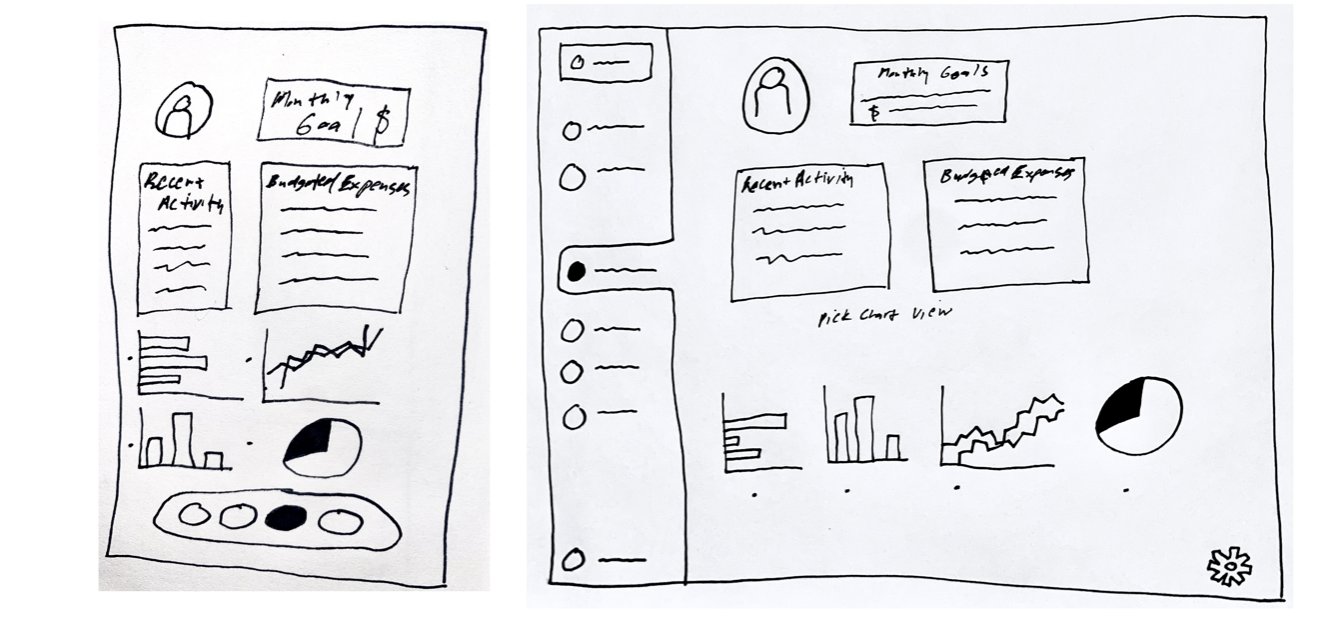 Monthly
Goal $
Recent
Activity
Budgeted Expenses
Monthly Goals
$
Recent Activity
Budgeted Expenses
Pick Chart View